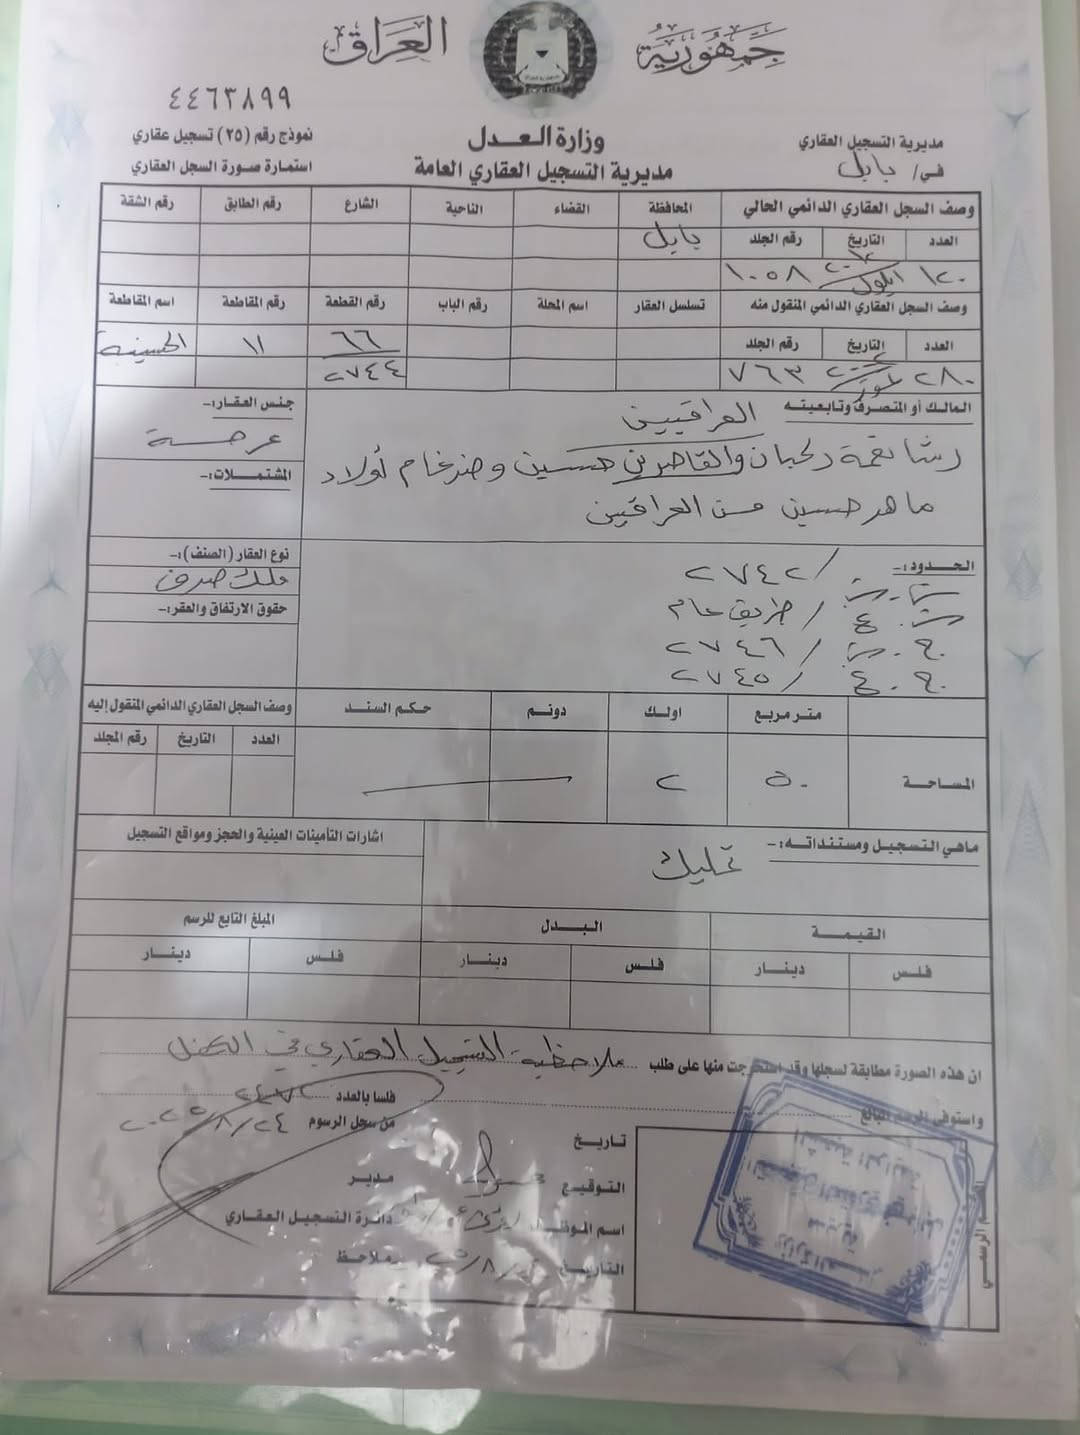 جمهورية العراق
٤٤٦٣٨٩٩
وزارة العدل
مديرية التسجيل العقاري العامة
مديرية التسجيل العقاري
في/ بابل
نموذج رقم (٢٥) تسجيل عقاري
استمارة صورة السجل العقاري
وصف السجل العقاري الدائمي الحالي المحافظة القضاء الناحية الشارع رقم الطابق رقم الشقة
العدد التاريخ رقم الجلد بابل
١٢٠ ايلول ٢٠١٢ ١٠٥٨
وصف السجل العقاري الدائمي المنقول منه تسلسل العقار اسم المحلة رقم الباب رقم القطعة رقم المقاطعة اسم المقاطعة
العدد التاريخ رقم الجلد ٦٦ ١١ الحسينية
٢٨٠ تموز ٧٦٣ ٢٧٤٤
المالك أو المتصرف وتابعيته العراقيين
رشا نعمة دحبان والقاصرين حسين وضرغام أولاد
ماهر حسين من العراقيين
جنس العقار:-
عرصة
المشتملات:-
نوع العقار (الصنف):-
ملك صرف
حقوق الارتفاق والعقر:-
الحدود:-
٢٧٤٢
طريق عام
٢٧٤٦
٢٧٤٥
متر مربع اولك دونم حكم السند وصف السجل العقاري الدائمي المنقول إليه
العدد التاريخ رقم المجلد
المساحة ٥٠ ٢
ماهي التسجيل ومستنداته:- اشارات التأمينات العينية والحجز ومواقع التسجيل
تمليك
القيمة البدل المبلغ التابع للرسم
فلس دينار فلس دينار فلس دينار
ان هذه الصورة مطابقة لسجلها وقد استخرجت منها على طلب ملاحظية التسجيل العقاري في الكفل
واستوفي الرسم البالغ فلسا بالعدد
من سجل الرسوم ٢٠٢٥/٨/٢٤
تاريخ
التوقيع مدير
اسم الموظف دائرة التسجيل العقاري
التاريخ ملاحظ
الختم الرسمي